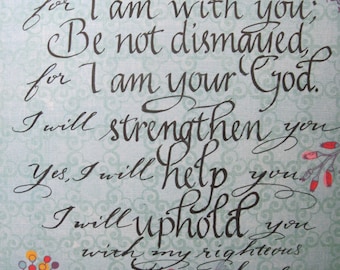 for I am with you;
Be not dismayed,
for I am your God.
I will strengthen you
Yes, I will help you
I will uphold you
with my righteous